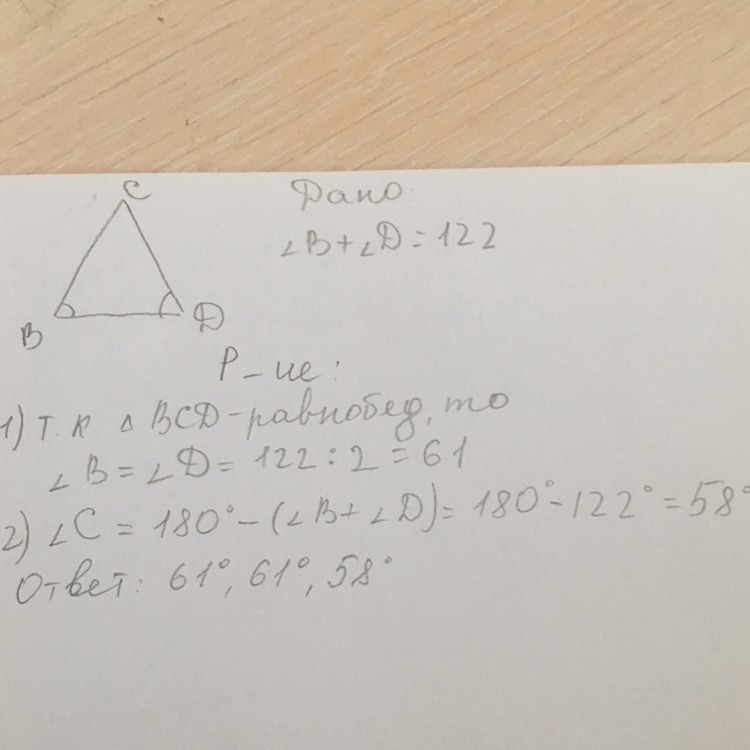 C
B
D
Дано:
∠B+∠D=122
Р-ие:
1) Т.к △ BCD-равнобед, то
∠B=∠D= 122:2=61
2) ∠C = 180°-(∠B+∠D)= 180°-122°=58°
Ответ: 61°, 61°, 58°